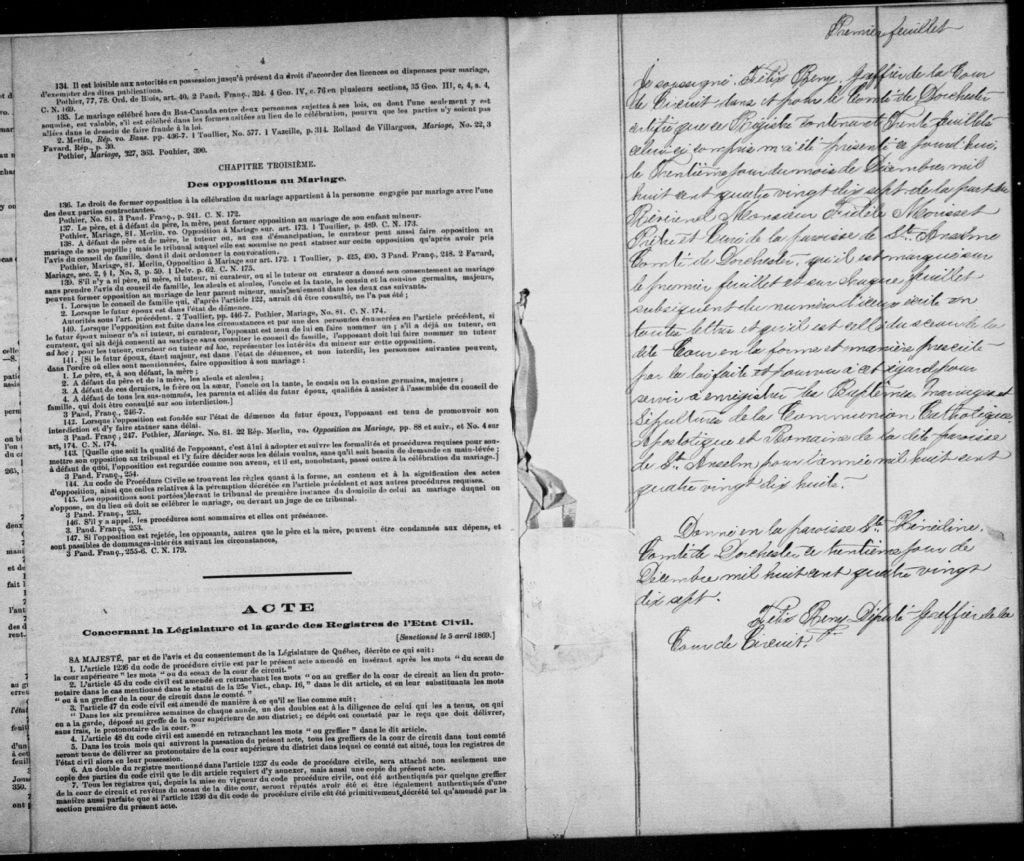 4
134. Il est loisible aux autorités en possession jusqu'à présent du droit d'accorder des licences ou dispenses pour mariage,
d'exempter des dites publications.
Pothier, 77, 78. Ord. de Blois, art. 40. 2 Pand. Franç., 324. 4 Geo. IV, c. 76 en plusieurs sections, 35 Geo. III, c, 4, s. 4,
C. N. 169.
135. Le mariage célébré hors du Bas-Canada entre deux personnes sujettes à ses lois, ou dont l'une seulement y est
soumise, est valable, s'il est célébré dans les formes usitées au lieu de la célébration, pourvu que les parties n'y soient pas
allées dans le dessein de faire fraude à la loi.
2. Merlin, Rép. vo. Bans. pp. 436-7. 1 Toullier, No. 577. 1 Vazeille, p. 314. Rolland de Villargues, Mariage, No. 22, 3
Favard, Rép., p. 30.
Pothier, Mariage, 327, 363. Pouhier, 390.
CHAPITRE TROISIÈME.
Des oppositions au Mariage.
136. Le droit de former opposition à la célébration du mariage appartient à la personne engagée par mariage avec l'une
des deux parties contractantes.
Pothier, No. 81. 3 Pand. Franç., p. 241. C. N. 172.
137. Le père, et à défaut du père, la mère, peut former opposition au mariage de son enfant mineur.
Pothier, Mariage, 81. Merlin, vo. Opposition à Mariage sur. art. 173. 1 Toullier, p. 489. C. N. 173.
138. A défaut de père et de mère, le tuteur ou, au cas d'émancipation, le curateur peut aussi faire opposition au
mariage de son pupille; mais le tribunal auquel elle est soumise ne peut statuer sur cette opposition qu'après avoir pris
l'avis du conseil de famille, dont il doit ordonner la convocation.
Pothier, Mariage, 81. Merlin, Opposition à Mariage sur art. 172. 1 Toullier, p. 425, 490. 3 Pand. Franç., 248. 2 Favard,
Mariage, sec. 2, § 1, No. 3, p. 59. 1 Delv. p. 62. C. N. 175.
139. S'il n'y a ni père, ni mère, ni tuteur, ni curateur, ou si le tuteur ou curateur a donné son consentement au mariage
sans prendre l'avis du conseil de famille, les aïeuls et aïeules, l'oncle et la tante, le cousin et la cousine germains, majeurs,
peuvent former opposition au mariage de leur parent mineur, mais seulement dans les deux cas suivants.
1. Lorsque le conseil de famille qui, d'après l'article 122, aurait dû être consulté, ne l'a pas été;
2. Lorsque le futur époux est dans l'état de démence.
Autorités sous l'art. précédent. 2 Toullier, pp. 446-7. Pothier, Mariage, No. 81. C. N. 174.
140. Lorsque l'opposition est faite dans les circonstances et par une des personnes énumérées en l'article précédent, si
le futur époux mineur n'a ni tuteur, ni curateur, l'opposant est tenu de lui en faire nommer un; s'il a déjà un tuteur, ou
curateur, qui ait déjà consenti au mariage sans consulter le conseil de famille, l'opposant doit lui faire nommer un tuteur
ad hoc; pour les tuteur, curateur ou tuteur ad hoc, représenter les intérêts du mineur sur cette opposition.
141. [Si le futur époux, étant majeur, est dans l'état de démence, et non interdit, les personnes suivantes peuvent,
dans l'ordre où elles sont mentionnées, faire opposition à son mariage:
1. Le père, et, à son défaut, la mère;
2. A défaut du père et de la mère, les aïeuls et aïeules;
3. A défaut de ces derniers, le frère ou la sœur, l'oncle ou la tante, le cousin ou la cousine germains, majeurs;
4. A défaut de tous les sus-nommés, les parents et alliés du futur époux, qualifiés à assister à l'assemblée du conseil de
famille, qui doit être consulté sur son interdiction.]
3 Pand. Franç., 246-7.
142. Lorsque l'opposition est fondée sur l'état de démence du futur époux, l'opposant est tenu de promouvoir son
interdiction et d'y faire statuer sans délai.
3 Pand. Franç., 247. Pothier, Mariage, No. 81. 22 Rép. Merlin, vo. Opposition au Mariage, pp. 88 et suiv., et No. 4 sur
art, 174. C. N. 174.
143. [Quelle que soit la qualité de l'opposant, c'est à lui à adopter et suivre les formalités et procédures requises pour sou-
mettre son opposition au tribunal et l'y faire décider sous les délais voulus, sans qu'il soit besoin de demande en main-levée;
à défaut de quoi, l'opposition est regardée comme non avenue, et il est, nonobstant, passé outre à la célébration du mariage.]
3 Pand. Franç., 254.
144. Au code de Procédure Civile se trouvent les règles quant à la forme, au contenu et à la signification des actes
d'opposition, ainsi que celles relatives à la péremption décrétée en l'article précédent et aux autres procédures requises.
145. Les oppositions sont portées devant le tribunal de première instance du domicile de celui au mariage duquel on
s'oppose, ou du lieu où doit se célébrer le mariage, ou devant un juge de ce tribunal.
3 Pand. Franç., 253.
146. S'il y a appel, les procédures sont sommaires et elles ont préséance.
3. Pand. Franç., 253.
147. Si l'opposition est rejetée, les opposants, autres que le père et la mère, peuvent être condamnés aux dépens, et
sont passibles de dommages-intérêts suivant les circonstances,
3 Pand. Franç., 255-6. C. N. 179.
ACTE
Concernant la Législature et la garde des Registres de l'Etat Civil.
[Sanctionné le 5 avril 1869.]
SA MAJESTÉ, par et de l'avis et du consentement de la Législature de Québec, décrète ce qui suit:
1. L'article 1236 du code de procédure civile est par le présent acte amendé en insérant après les mots "du sceau de
la cour supérieure" les mots "ou du sceau de la cour de circuit."
2. L'article 45 du code civil est amendé en retranchant les mots "ou au greffier de la cour de circuit au lieu du proto-
notaire dans le cas mentionné dans le statut de la 25e Vict., chap. 16," dans le dit article, et en leur substituants les mots
"ou à un greffier de la cour de circuit dans le comté."
3. l'article 47 du code civil est amendé de manière à ce qu'il se lise comme suit:
"Dans les six premières semaines de chaque année, un des doubles est à la diligence de celui qui les a tenus, ou qui
en a la garde, déposé au greffe de la cour supérieure de son district; ce dépôt est constaté par le reçu que doit délivrer,
sans frais, le protonotaire de la cour."
4. L'article 48 du code civil est amendé en retranchant les mots "ou greffier" dans le dit article.
5. Dans les trois mois qui suivront la passation du présent acte, tous les greffiers de la cour de circuit dans tout comté
seront tenus de délivrer au protonotaire de la cour supérieure du district dans lequel ce comté est situé, tous les registres de
l'état civil alors en leur possession.
6. Au double du registre mentionné dans l'article 1237 du code de procédure civile, sera attaché non seulement une
copie des parties du code civil que le dit article requiert d'y annexer, mais aussi une copie du présent acte.
7. Tous les registres qui, depuis la mise en vigueur du code procédure civile, ont été authentiqués par quelque greffier
de la cour de circuit et revêtus du sceau de la dite cour, seront réputés avoir été et être légalement authentiqués d'une
manière aussi parfaite que si l'article 1236 du dit code de procédure civile eût été primitivement décrété tel qu'amendé par la
section première du présent acte.
Premier feuillet
Je soussigné, Félix Remy, Greffier de la Cour
de Circuit dans et pour le Comté de Dorchester
certifie que ce Régistre contenant Trente feuillets
celui-ci compris m'a été présenté ce jourd'hui,
le Trentième jour du mois de Décembre mil
huit cent quatre vingt dix sept de la part du
Révérend Monsieur Fidèle Morisset
Prêtre et Curé de la paroisse de St. Anselme
Comté de Dorchester, qu'il est marqué sur
le premier feuillet et sur chaque feuillet
subséquent du numéro d'icelui écrit en
toutes lettres et qu'il est scellé du sceau de la
dite Cour en la forme et manière prescrite
par la loi faite et pourvu à cet égard pour
servir à enregistrer les Baptêmes Mariages et
Sépultures de la Communion Catholique
Apostolique et Romaine de la dite paroisse
de St. Anselme pour l'année mil huit cent
quatre vingt dix huit.
Donné en la paroisse Ste. Hénédine.
Comté de Dorchester ce trentième jour de
Décembre mil huit cent quatre vingt
dix sept.
Félix Remy Député Greffier de la
Cour de Circuit.